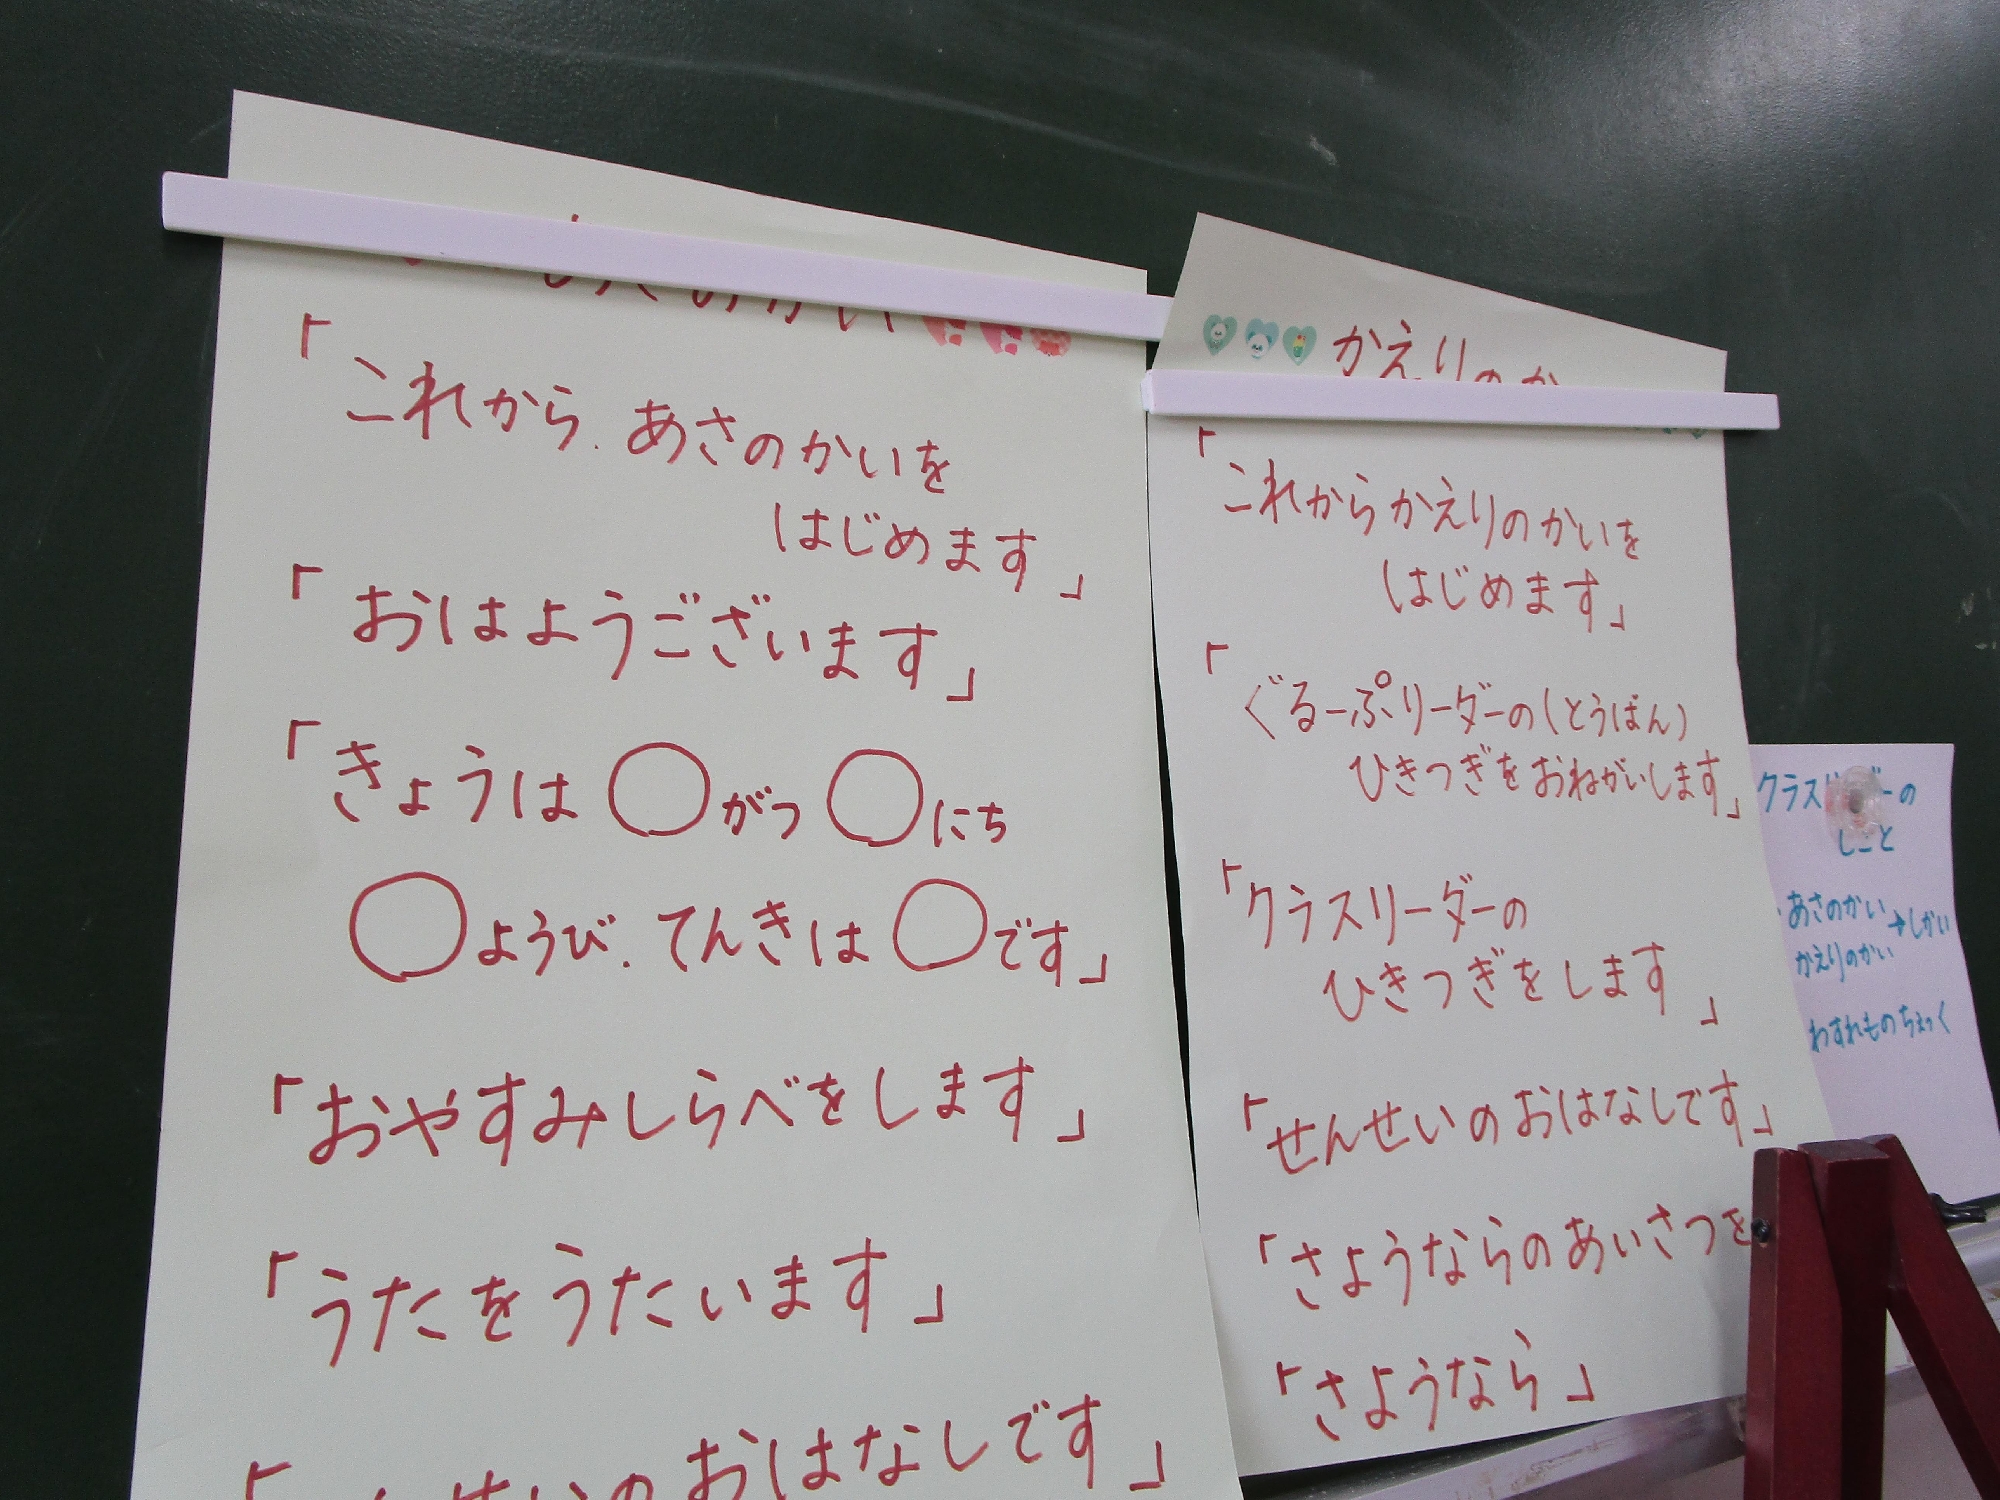 「これから、あさのかいを
はじめます」
「おはようございます」
「きょうは ○がつ ○にち
○ようび、てんきは ○です」
「おやすみしらべをします」
「うたをうたいます」
「せんせいのおはなしです」
かえりのか
「これからかえりのかいを
はじめます」
「ぐるーぷリーダーの(とうばん)
ひきつぎをおねがいします」
「クラスリーダーの
ひきつぎをします」
「せんせいのおはなしです」
「さようならのあいさつを
「さようなら」
クラスリーダーの
しごと
・あさのかい→しかい
かえりのかい
わすれものちぇっく